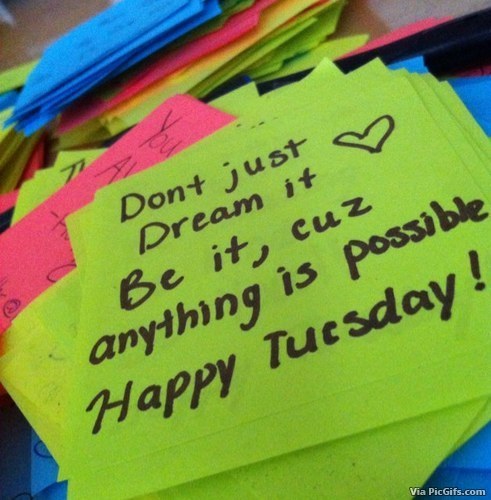 Dont just
Dream it
Be it, cuz
anything is possible
Happy Tuesday!
You
Via PicGifs.com